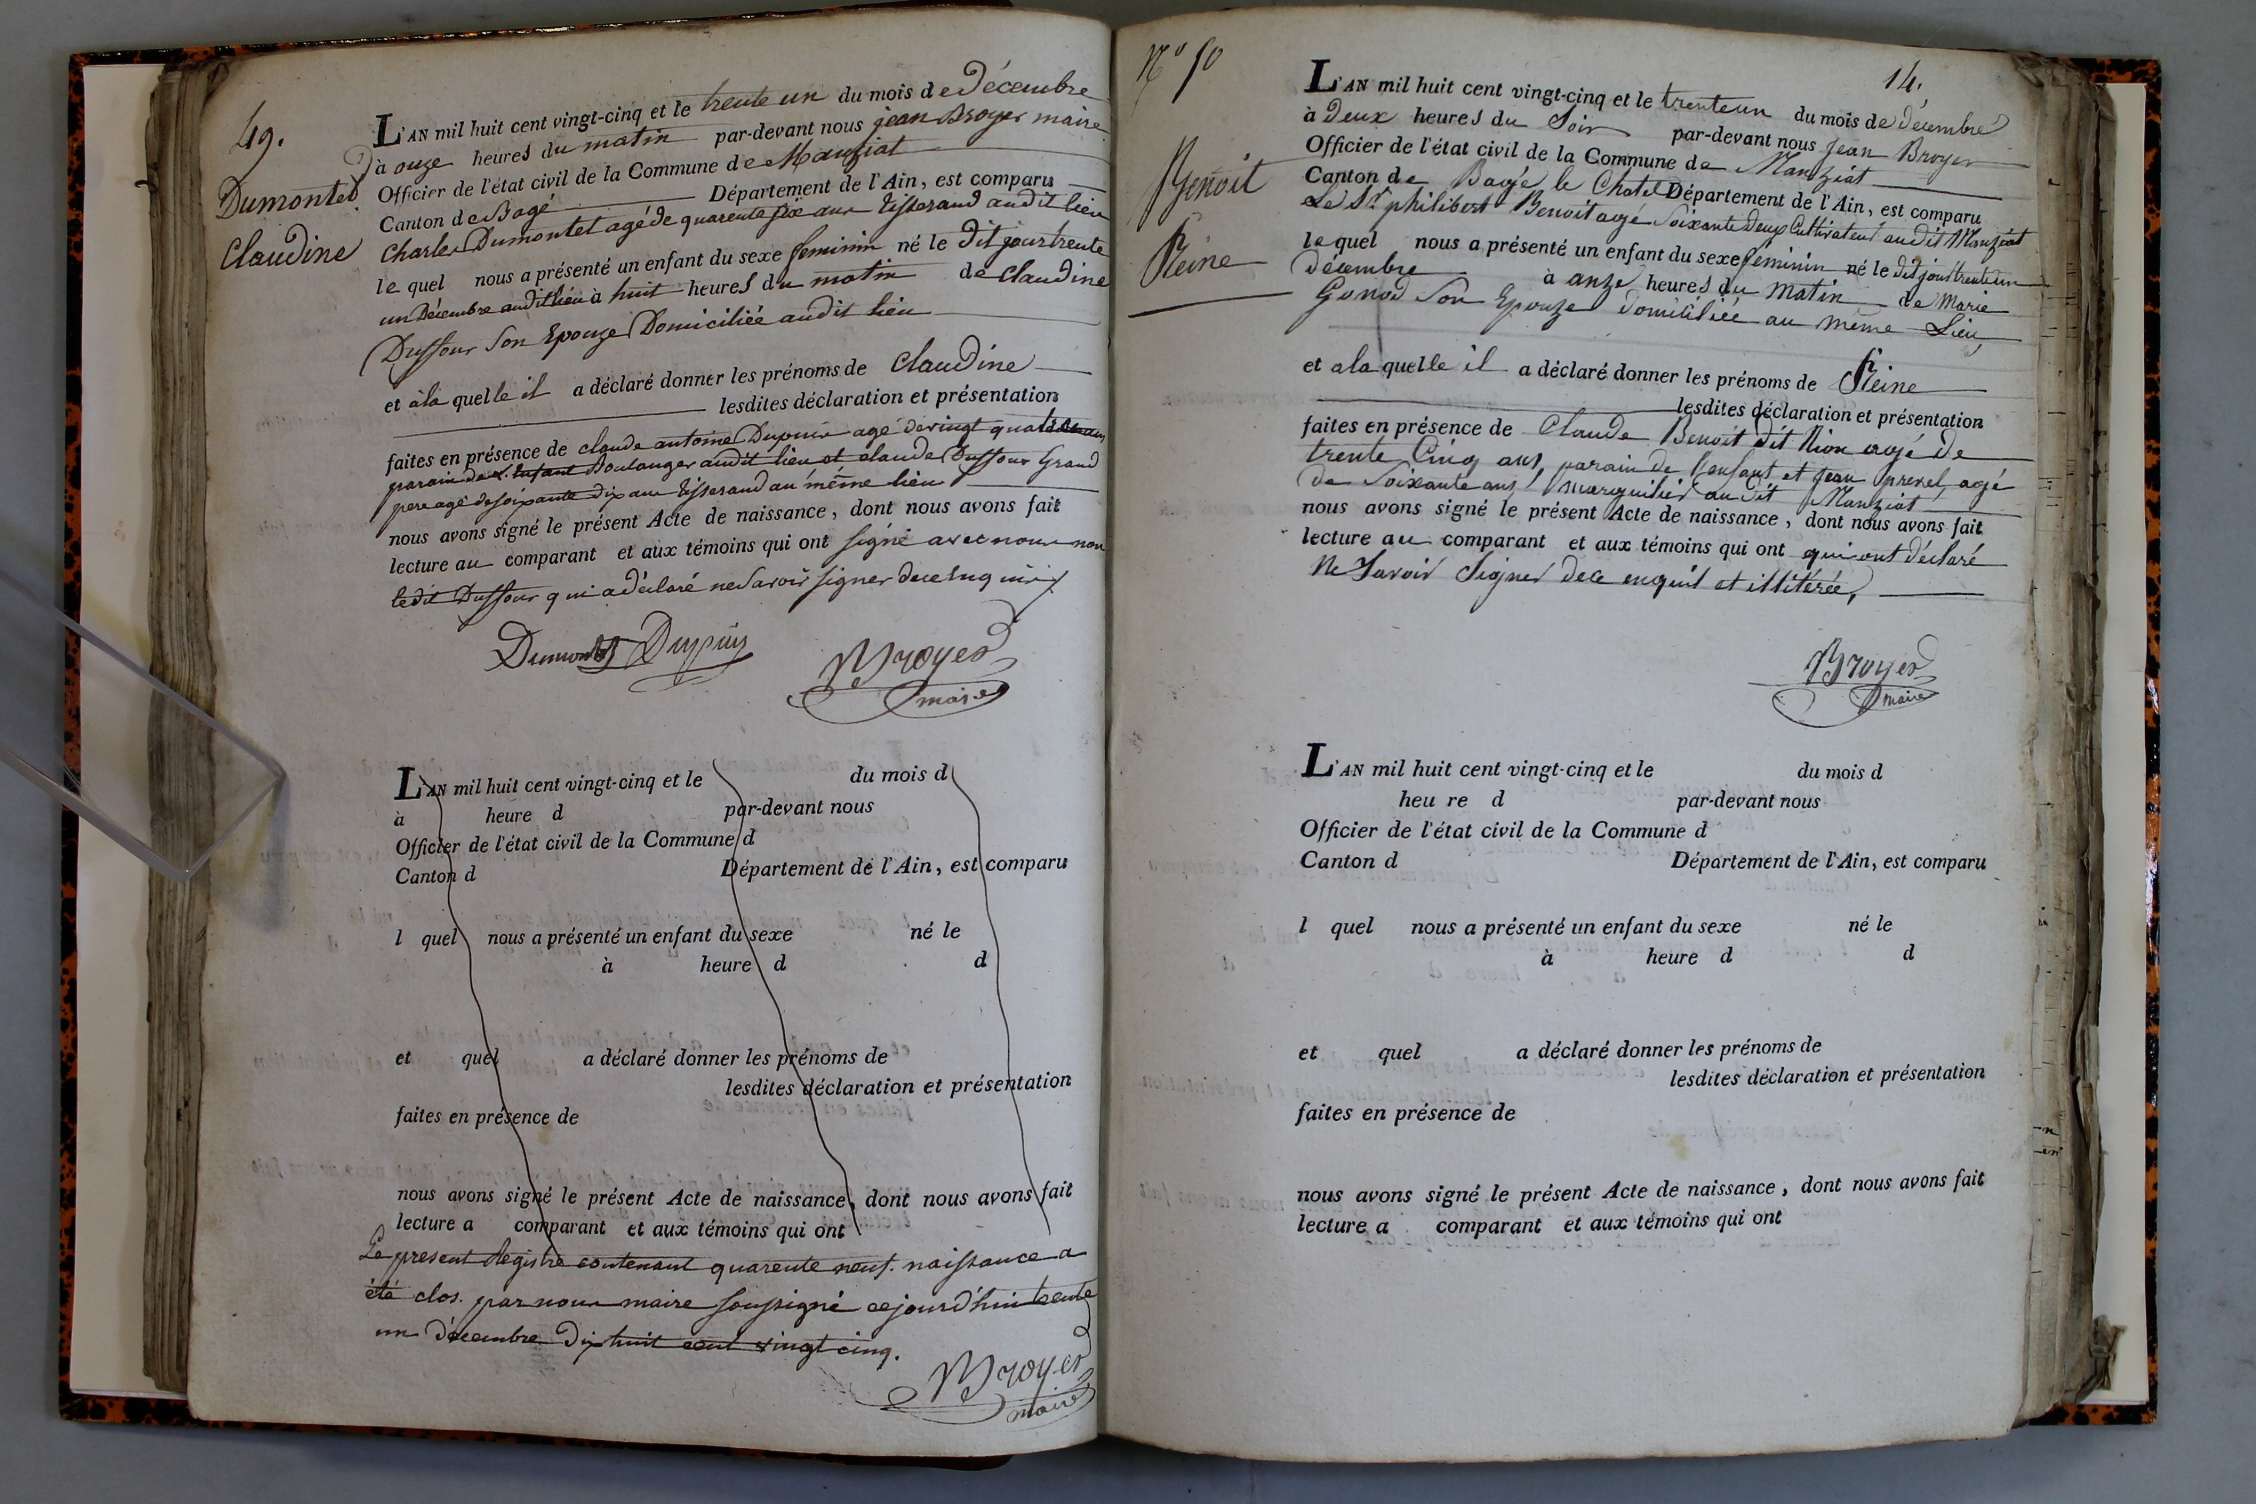 49.
Dumontet
Claudine
L'AN mil huit cent vingt-cinq et le trente un du mois de Décembre
à onze heures du matin par-devant nous jean Broyer maire
Officier de l'état civil de la Commune de Manziat
Canton de Bagé Département de l'Ain, est comparu
Charles Dumontet agé de quarente six ans tisserand audit lieu
le quel nous a présenté un enfant du sexe feminin né le dit jour trente
un Décembre audit lieu à huit heures du matin de Claudine
Duffour son Epouze Domiciliée audit lieu
et à la quelle il a déclaré donner les prénoms de Claudine
lesdites déclaration et présentation
faites en présence de claude antoine Dupuis agé de vingt quatre ans
parain de l'enfant Boulanger audit lieu et claude Duffour Grand
pere agé de soixante dix ans tisserand au même lieu
nous avons signé le présent Acte de naissance, dont nous avons fait
lecture au comparant et aux témoins qui ont signé avec nous non
le dit Duffour qui a déclaré ne savoir signer de ce enquis
Dumontet Dupuis Broyer
maire
L'AN mil huit cent vingt-cinq et le du mois d
à heure d par-devant nous
Officier de l'état civil de la Commune d
Canton d Département de l'Ain, est comparu
l quel nous a présenté un enfant du sexe né le
à heure d d
et quel a déclaré donner les prénoms de
lesdites déclaration et présentation
faites en présence de
nous avons signé le présent Acte de naissance, dont nous avons fait
lecture a comparant et aux témoins qui ont
Le present Registre contenant quarente neuf naissance a
été clos par nous maire soussigné cejourd'hui trente
un décembre Dix huit cent vingt cinq.
Broyer
maire
N° 50
14.
Benoit
Reine
L'AN mil huit cent vingt-cinq et le trente un du mois de décembre
à Deux heures du Soir par-devant nous Jean Broyer
Officier de l'état civil de la Commune de Manziat
Canton de Bagé le Chatel Département de l'Ain, est comparu
Le Sr philibert Benoit agé Soixante Deux Cultivateur audit Manziat
le quel nous a présenté un enfant du sexe feminin né le dit jour trente un
décembre à onze heures du Matin de Marie
Gonod Son Epouze domiciliée au même Lieu
et a la quelle il a déclaré donner les prénoms de Reine
lesdites déclaration et présentation
faites en présence de Claude Benoit dit Nion agé de
trente Cinq ans, parain de l'enfant et Jean prevel, agé
de Soixante ans, marguilier audit Manziat
nous avons signé le présent Acte de naissance, dont nous avons fait
lecture au comparant et aux témoins qui ont qui ont déclaré
Ne Savoir Signer de ce enquis et illitérée,
Broyer
maire
L'AN mil huit cent vingt-cinq et le du mois d
heu re d par-devant nous
Officier de l'état civil de la Commune d
Canton d Département de l'Ain, est comparu
l quel nous a présenté un enfant du sexe né le
à heure d d
et quel a déclaré donner les prénoms de
lesdites déclaration et présentation
faites en présence de
nous avons signé le présent Acte de naissance, dont nous avons fait
lecture a comparant et aux témoins qui ont